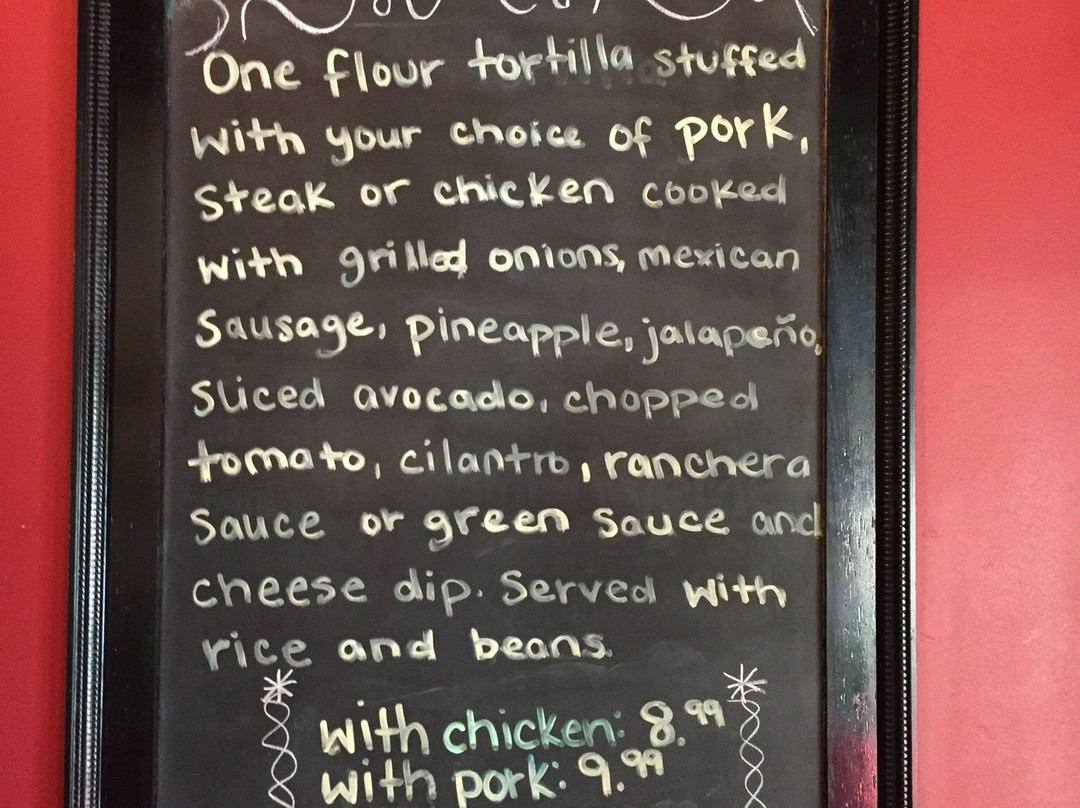 One flour tortilla stuffed
with your choice of pork,
Steak or chicken cooked
with grilled onions, mexican
Sausage, pineapple, jalapeño,
sliced avocado, chopped
tomato, cilantro, ranchera
Sauce or green sauce and
cheese dip. Served with
rice and beans.
with chicken: 8.99
with pork: 9.99